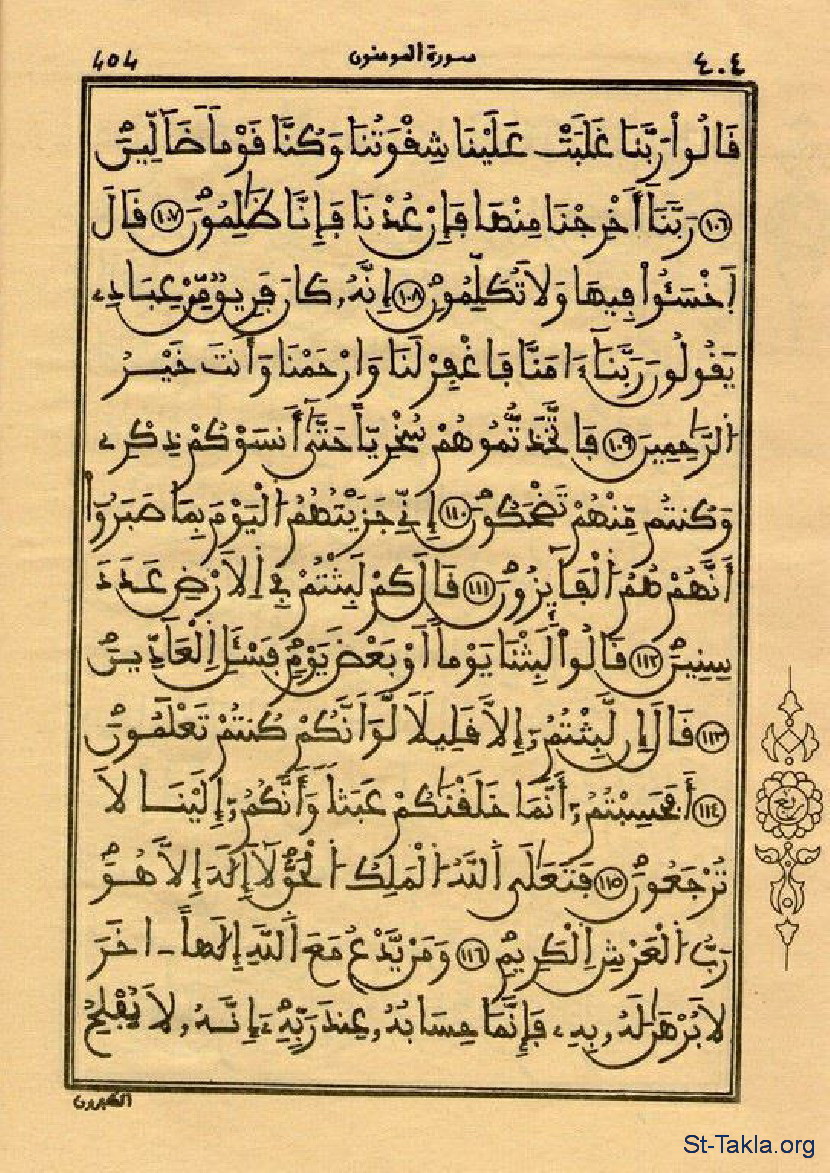 ٤٠٤ سورة المومنون 404
قَالُواْ رَبَّنَا غَلَبَتْ عَلَيْنَا شِقْوَتُنَا وَكُنَّا قَوْماً ضَآلِّينَ
١٠٦ رَبَّنَآ أَخْرِجْنَا مِنْهَا فَإِنْ عُدْنَا فَإِنَّا ظَٰلِمُونَ ١٠٧ قَالَ
اَخْسَـُٔواْ فِيهَا وَلَا تُكَلِّمُونِ ١٠٨ إِنَّهُۥ كَانَ فَرِيقٌ مِّنْ عِبَادِے
يَقُولُونَ رَبَّنَآ ءَامَنَّا فَاغْفِرْ لَنَا وَارْحَمْنَا وَأَنتَ خَيْرُ
اُ۬لرَّٰحِمِينَ ١٠٩ فَاتَّخَذتُّمُوهُمْ سُخْرِيّاً حَتَّىٰٓ أَنسَوْكُمْ ذِكْرِے
وَكُنتُم مِّنْهُمْ تَضْحَكُونَ ١١٠ إِنِّے جَزَيْتُهُمُ اُ۬لْيَوْمَ بِمَا صَبَرُوٓاْ
أَنَّهُمْ هُمُ اُ۬لْفَآئِزُونَ ١١١ قَالَ كَمْ لَبِثْتُمْ فِے اِ۬لَارْضِ عَدَدَ
سِنِينَ ١١٢ قَالُواْ لَبِثْنَا يَوْماً أَوْ بَعْضَ يَوْمٍ فَسْـَٔلِ اِ۬لْعَآدِّينَ
١١٣ قَالَ إِن لَّبِثْتُمُۥٓ إِلَّا قَلِيلًا لَّوَ اَنَّكُمْ كُنتُمْ تَعْلَمُونَ
١١٤ أَفَحَسِبْتُمُۥٓ أَنَّمَا خَلَقْنَٰكُمْ عَبَثاً وَأَنَّكُمُۥٓ إِلَيْنَا لَا
تُرْجَعُونَ ١١٥ فَتَعَٰلَى اَ۬للَّهُ اُ۬لْمَلِكُ اُ۬لْحَقُّ لَآ إِلَٰهَ إِلَّا هُوَ
رَبُّ اُ۬لْعَرْشِ اِ۬لْكَرِيمِ ١١٦ وَمَنْ يَّدْعُ مَعَ اَ۬للَّهِ إِلَٰهاً ـ اخَرَ
لَا بُرْهَٰنَ لَهُۥ بِهِۦ فَإِنَّمَا حِسَابُهُۥ عِندَ رَبِّهِۦٓ إِنَّهُۥ لَا يُفْلِحُ
الكٰفرون
ربع
St-Takla.org